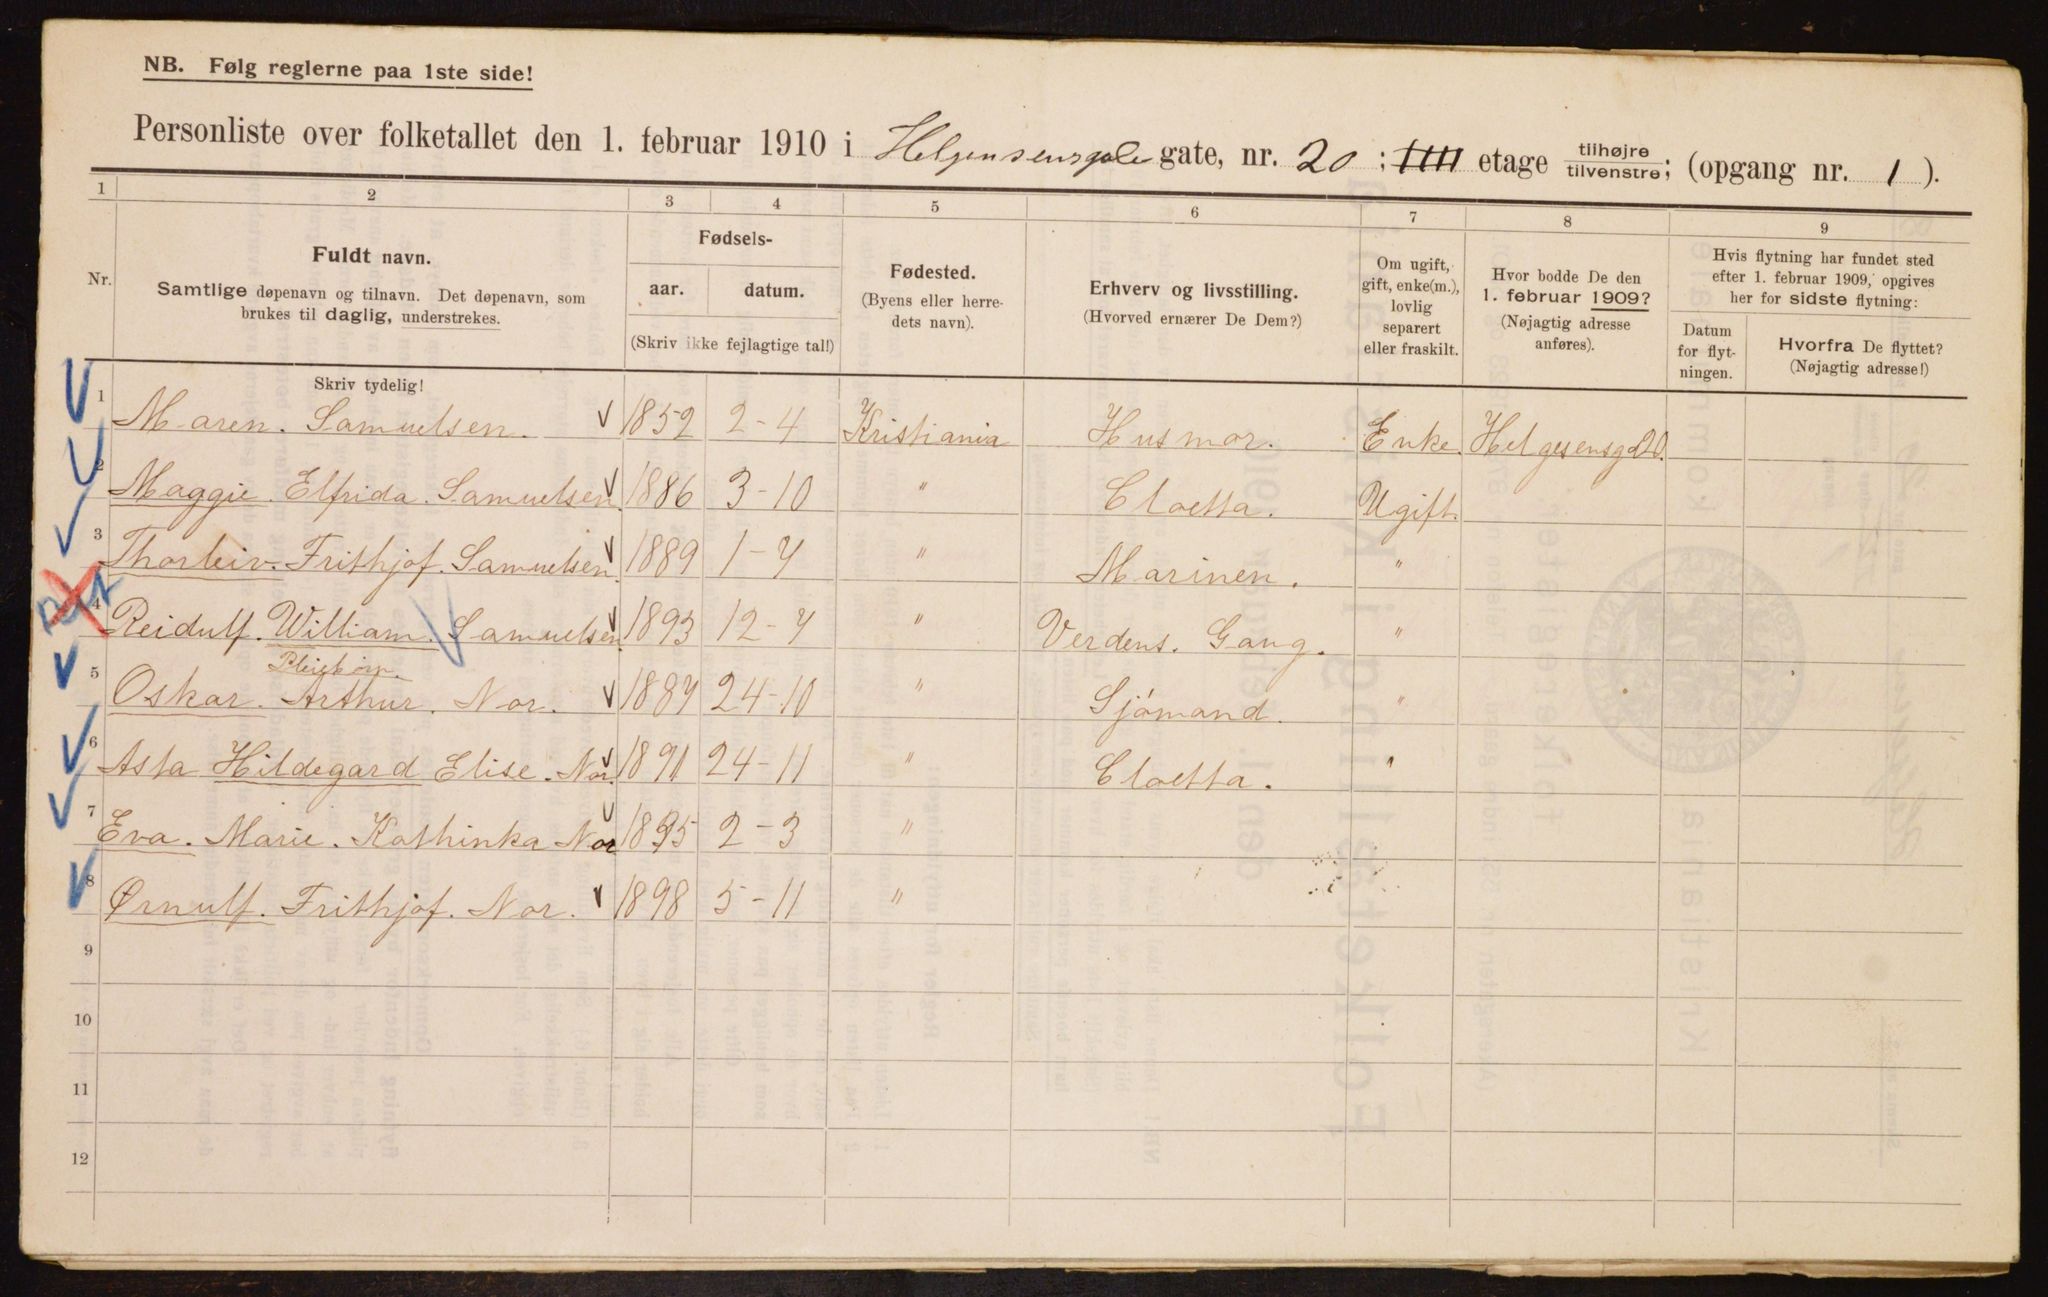 NB. Følg reglerne paa 1ste side!
Personliste over folketallet den 1. februar 1910 i Helgensensgate gate, nr. 20 ; IIII etage tilhøjre/tilvenstre; (opgang nr. 1 ).
1 2 3 4 5 6 7 8 9
Nr.
Fuldt navn.
Samtlige døpenavn og tilnavn. Det døpenavn, som
brukes til daglig, understrekes.
Fødsels-
aar. datum.
(Skriv ikke fejlagtige tal!)
Fødested.
(Byens eller herre-
dets navn).
Erhverv og livsstilling.
(Hvorved ernærer De Dem?)
Om ugift,
gift, enke(m.),
lovlig
separert
eller fraskilt.
Hvor bodde De den
1. februar 1909?
(Nøjagtig adresse
anføres).
Hvis flytning har fundet sted
efter 1. februar 1909, opgives
her for sidste flytning:
Datum
for flyt-
ningen.
Hvorfra De flyttet?
(Nøjagtig adresse!)
Skriv tydelig!
1 Maren. Samuelsen. 1852 2-4 Kristiania Husmor. Enke. Helgesensgd 20.
2 Maggie. Elfrida. Samuelsen 1886 3-10 " Cloetta. Ugift.
3 Thorleiv. Frithjof. Samuelsen. 1889 1-7 " Marinen. "
4 Reidulf. William. Samuelsen. 1893 12-7 " Verdens. Gang. "
Pleiebørn.
5 Oskar. Arthur. Nor. 1887 24-10 " Sjömand. "
6 Asta Hildegard Elise. Nor. 1891 24-11 " Cloetta. "
7 Eva. Marie. Kathinka Nor 1895 2-3 "
8 Ørnulf. Frithjof. Nor. 1898 5-11 "
9
10
11
12